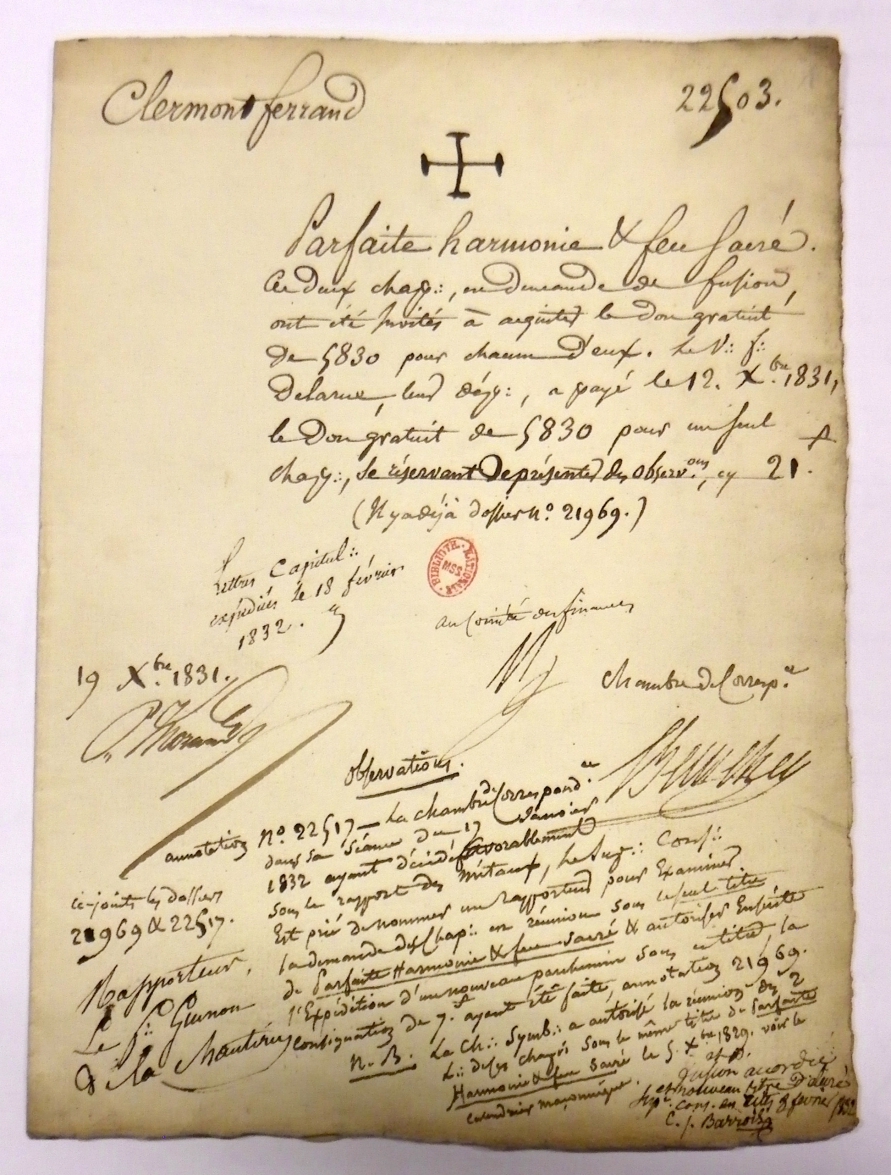 Clermont ferrand
22503.
Parfaite harmonie & feu Sacré.
Ces deux chap∴, en demande de fusion,
ont été invités à acquitter le Don gratuit
de 5830 pour chacun d'eux. Le V∴ f∴
Delarue, leur dép∴, a payé le 12. Xbre 1831,
le Don gratuit de 5830 pour un seul
chap∴, se réservant de présenter des observons, cy 21.f
(Il y a déjà dossier no. 21969.)
Lettres Capitul∴
expédiées le 18 février
1832.
BIBLIOTH. NATIONALE MSS
au Comité des finances
19 Xbre 1831.
Chambre de Corresp.ce
Observations.
annotation No. 22517 — La chambre de Correspondce
dans sa Séance du 17 Janvier
1832 ayant décidé favorablement
sous le rapport des métaux, Le Sup∴ Cons∴
Est prié de nommer un rapporteur pour Examiner
la demande des Chap∴ en réunion sous le seul titre
de Parfaite Harmonie & feu Sacré & autoriser Ensuite
l'Expédition d'un nouveau parchemin sous ce titre, la
consignation de 7.f ayant été faite, annotation 21969.
ci-joints les dossiers
21969 & 22517.
Rapporteur,
Le f∴
de la
N.B. La Ch∴ Symb∴ a autorisé la réunion des 2
L∴ de ces chapes sous le même titre de Parfaite
Harmonie & feu Sacré le 5. Xbre 1829. voir le
calendrier maçonnique.
fusion accordée
et nouveau titre
Sup. Cons. des Rites 8 février 1832
C. J. Barrois